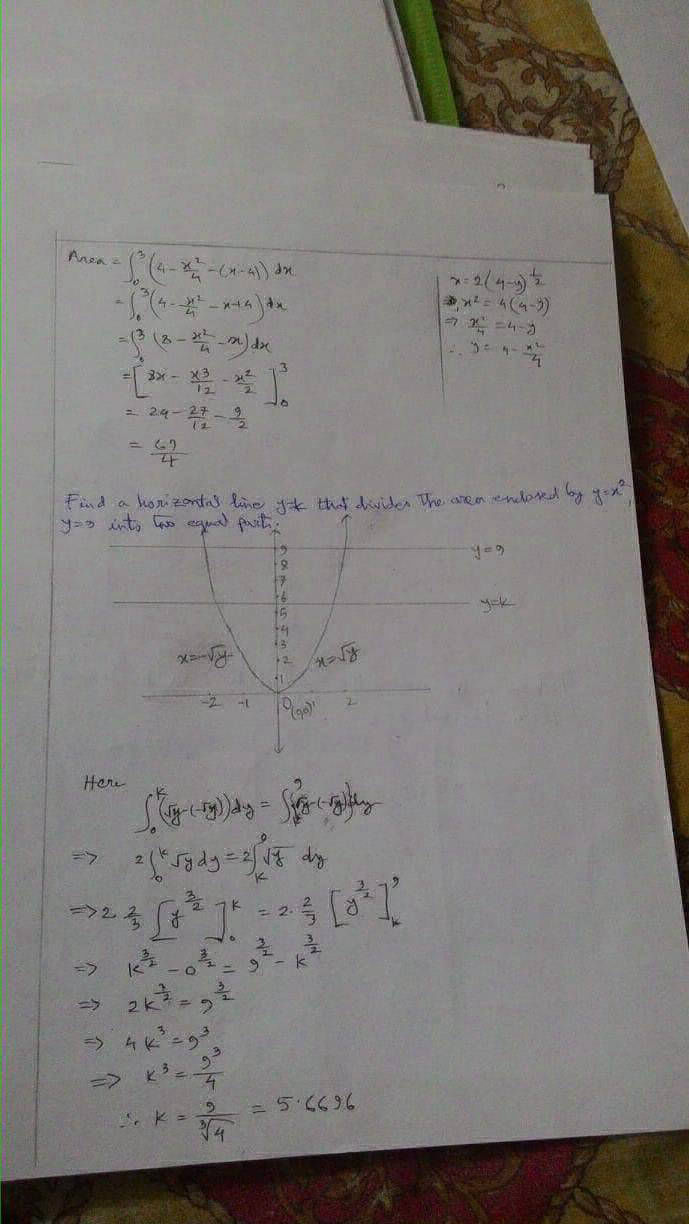 Area = ∫₀³ (4 - x²/4 - (x-4)) dx
= ∫₀³ (4 - x²/4 - x+4) dx
= ∫₀³ (8 - x²/4 - x) dx
= [8x - x3/12 - x²/2]₀³
= 24 - 27/12 - 9/2
= 69/4
x = 2(4-y)^½
x² = 4(4-y)
⇒ x²/4 = 4-y
∴ y = 4 - x²/4
Find a horizontal line y=k that divides The area enclosed by y=x²,
y=9 into two equal parts.
9
y=9
8
7
6
y=k
5
4
3
x=-√y
2
x=√y
1
-2 -1 O(0,0) 1 2
Here
∫₀ᵏ (√y-(-√y)) dy = ∫ₖ⁹ (√y-(-√y)) dy
=> 2∫₀ᵏ √y dy = 2∫ₖ⁹ √y dy
=> 2 2/3 [y^3/2]₀ᵏ = 2·2/3 [y^3/2]ₖ⁹
=> k^3/2 - 0^3/2 = 9^3/2 - k^3/2
=> 2k^3/2 = 9^3/2
=> 4k³ = 9³
=> k³ = 9³/4
∴ k = 9/∛4 = 5.6696